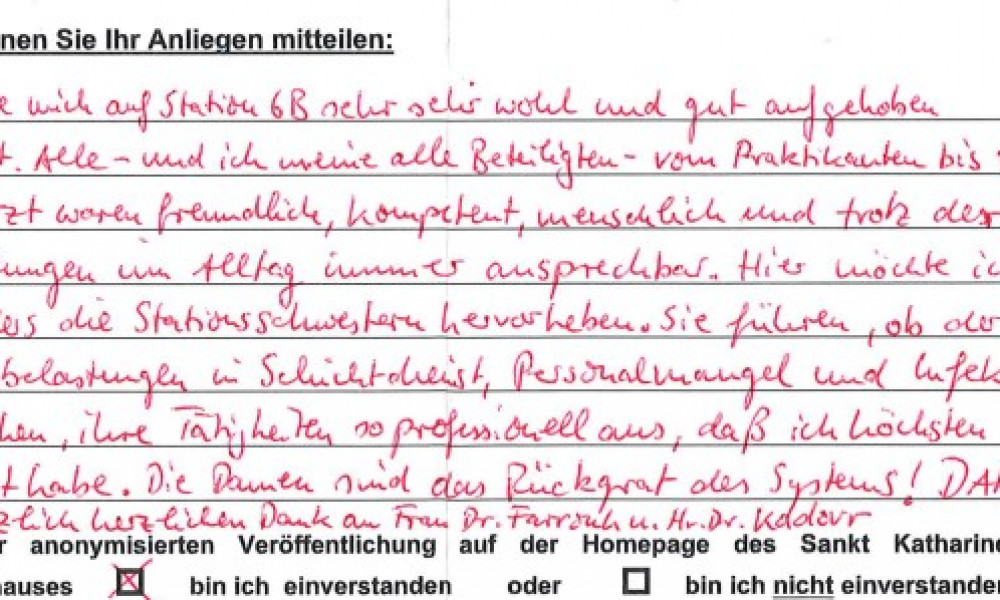 nen Sie Ihr Anliegen mitteilen:
e mich auf Station 6B sehr sehr wohl und gut aufgehoben
t. Alle - und ich meine alle Beteiligten - vom Praktikanten bis
zt waren freundlich, kompetent, menschlich und trotz der
ungen im Alltag immer ansprechbar. Hier möchte ic
ers die Stationsschwestern hervorheben. Sie führen, ob der
belastungen in Schichtdienst, Personalmangel und Infek
hen, ihre Tätigkeiten so professionell aus, daß ich höchsten
t habe. Die Damen sind das Rückgrat des Systems! DA
z-lich herz-lichen Dank an Frau Dr. Farrouh u. Hr. Dr. Kadour
r anonymisierten Veröffentlichung auf der Homepage des Sankt Katharin
hauses ☒ bin ich einverstanden oder ☐ bin ich nicht einverstanden